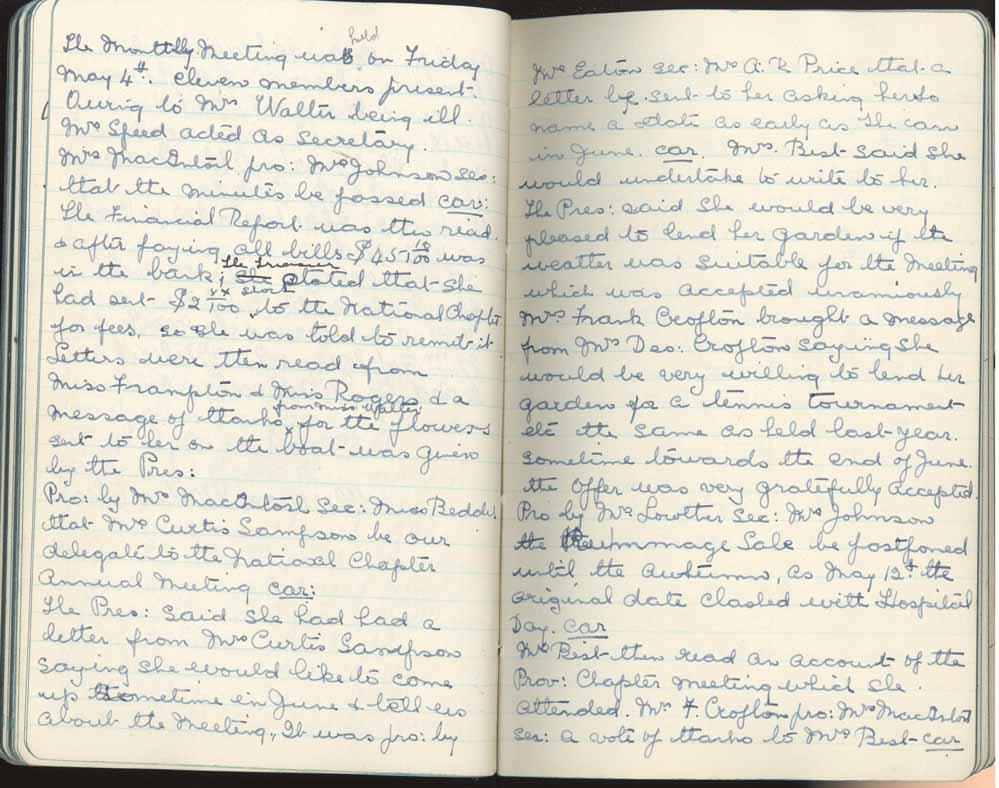 The Monthly Meeting was held on Friday
May 4th. eleven members present.
Owing to Mrs Walter being ill.
Mrs Speed acted as secretary
Mrs MacIntosh pro: Mrs Johnson sec:
that the minutes be passed car:
The Financial Report was then read.
& after paying all bills $45 18/100 was
in the bank; the treasurer She stated that she
had sent $2 xx/100 short to the National Chapter
for fees. so she was told to remit it
Letters were then read from
Miss Frampton & Miss Rogers & a
message of thanks from Miss Walter for the flowers
sent to her on the boat was given
by the Pres:
Pro: by Mrs MacIntosh Sec: Miss Beddis
that Mrs Curtis Sampson be our
delegate to the National Chapter
Annual Meeting car:
The Pres: said she had had a
letter from Mrs Curtis Sampson
saying she would like to come
up sometime in June & tell us
about the Meeting, It was pro: by
Mrs Eaton sec: Mrs A. R Price that a
letter be sent to her asking her to
name a date as early as she can
in June. car. Mrs. Best said she
would undertake to write to her.
The Pres: said she would be very
pleased to lend her garden if the
weather was suitable for the Meeting
which was accepted unaniously
Mrs. Frank Crofton brought a message
from Mrs Des: Crofton saying she
would be very willing to lend her
garden for a tennis tournament
etc the same as held last year.
sometime towards the end of June.
the offer was very gratefully accepted.
Pro by Mrs Lowther sec: Mrs Johnson
the Rummage Sale be postponed
until the Autumn, as May 12th the
original date clashed with Hospital
Day. car
Mrs Best then read an account of the
Prov: Chapter meeting which she
attended. Mrs F. Crofton pro: Mrs MacIntosh
sec: a vote of thanks to Mrs Best car